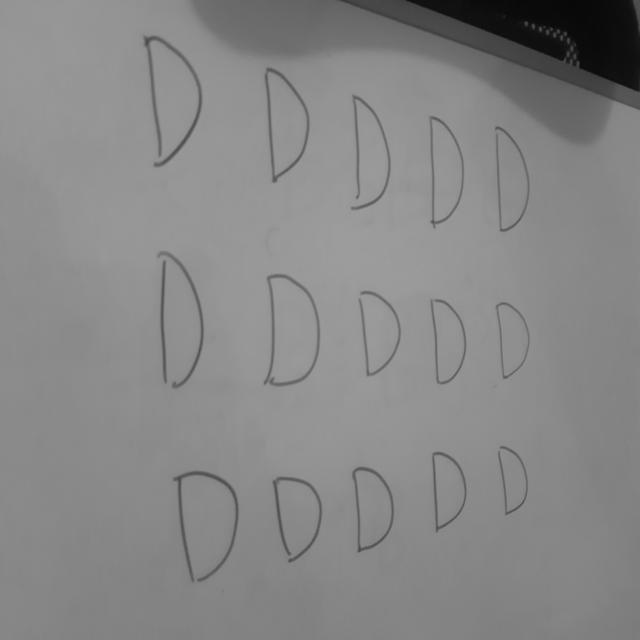 D D D D D
D D D D D
D D D D D